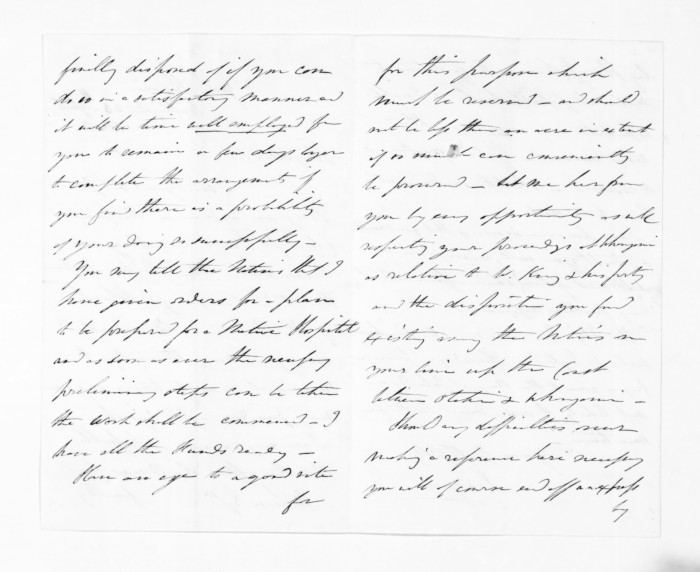 finally disposed of if you can
do so in a satisfactory manner and
it will be time well employed for
you to remain a few days longer
to complete the arrangement if
you find there is a probability
of your doing so successfully —
You may tell the Natives that I
have given orders for a plan
to be prepared for a Native Hospital
and as soon as ever the necessary
preliminary steps can be taken
the work shall be commenced — I
have all the Funds ready —
Have an eye to a good site
for
for this purpose which
must be reserved — and should
not be less than an acre in extent
if so much can conveniently
be procured — Let me hear from
you by every opportunity as well
respecting your proceedings at Whanganui
as relative to W. King & his party
and the disposition you find
existing among the Natives on
your line up the Coast
between Otaki & Whanganui —
Should any difficulties occur
making a reference here necessary
you will of course send off an express
by